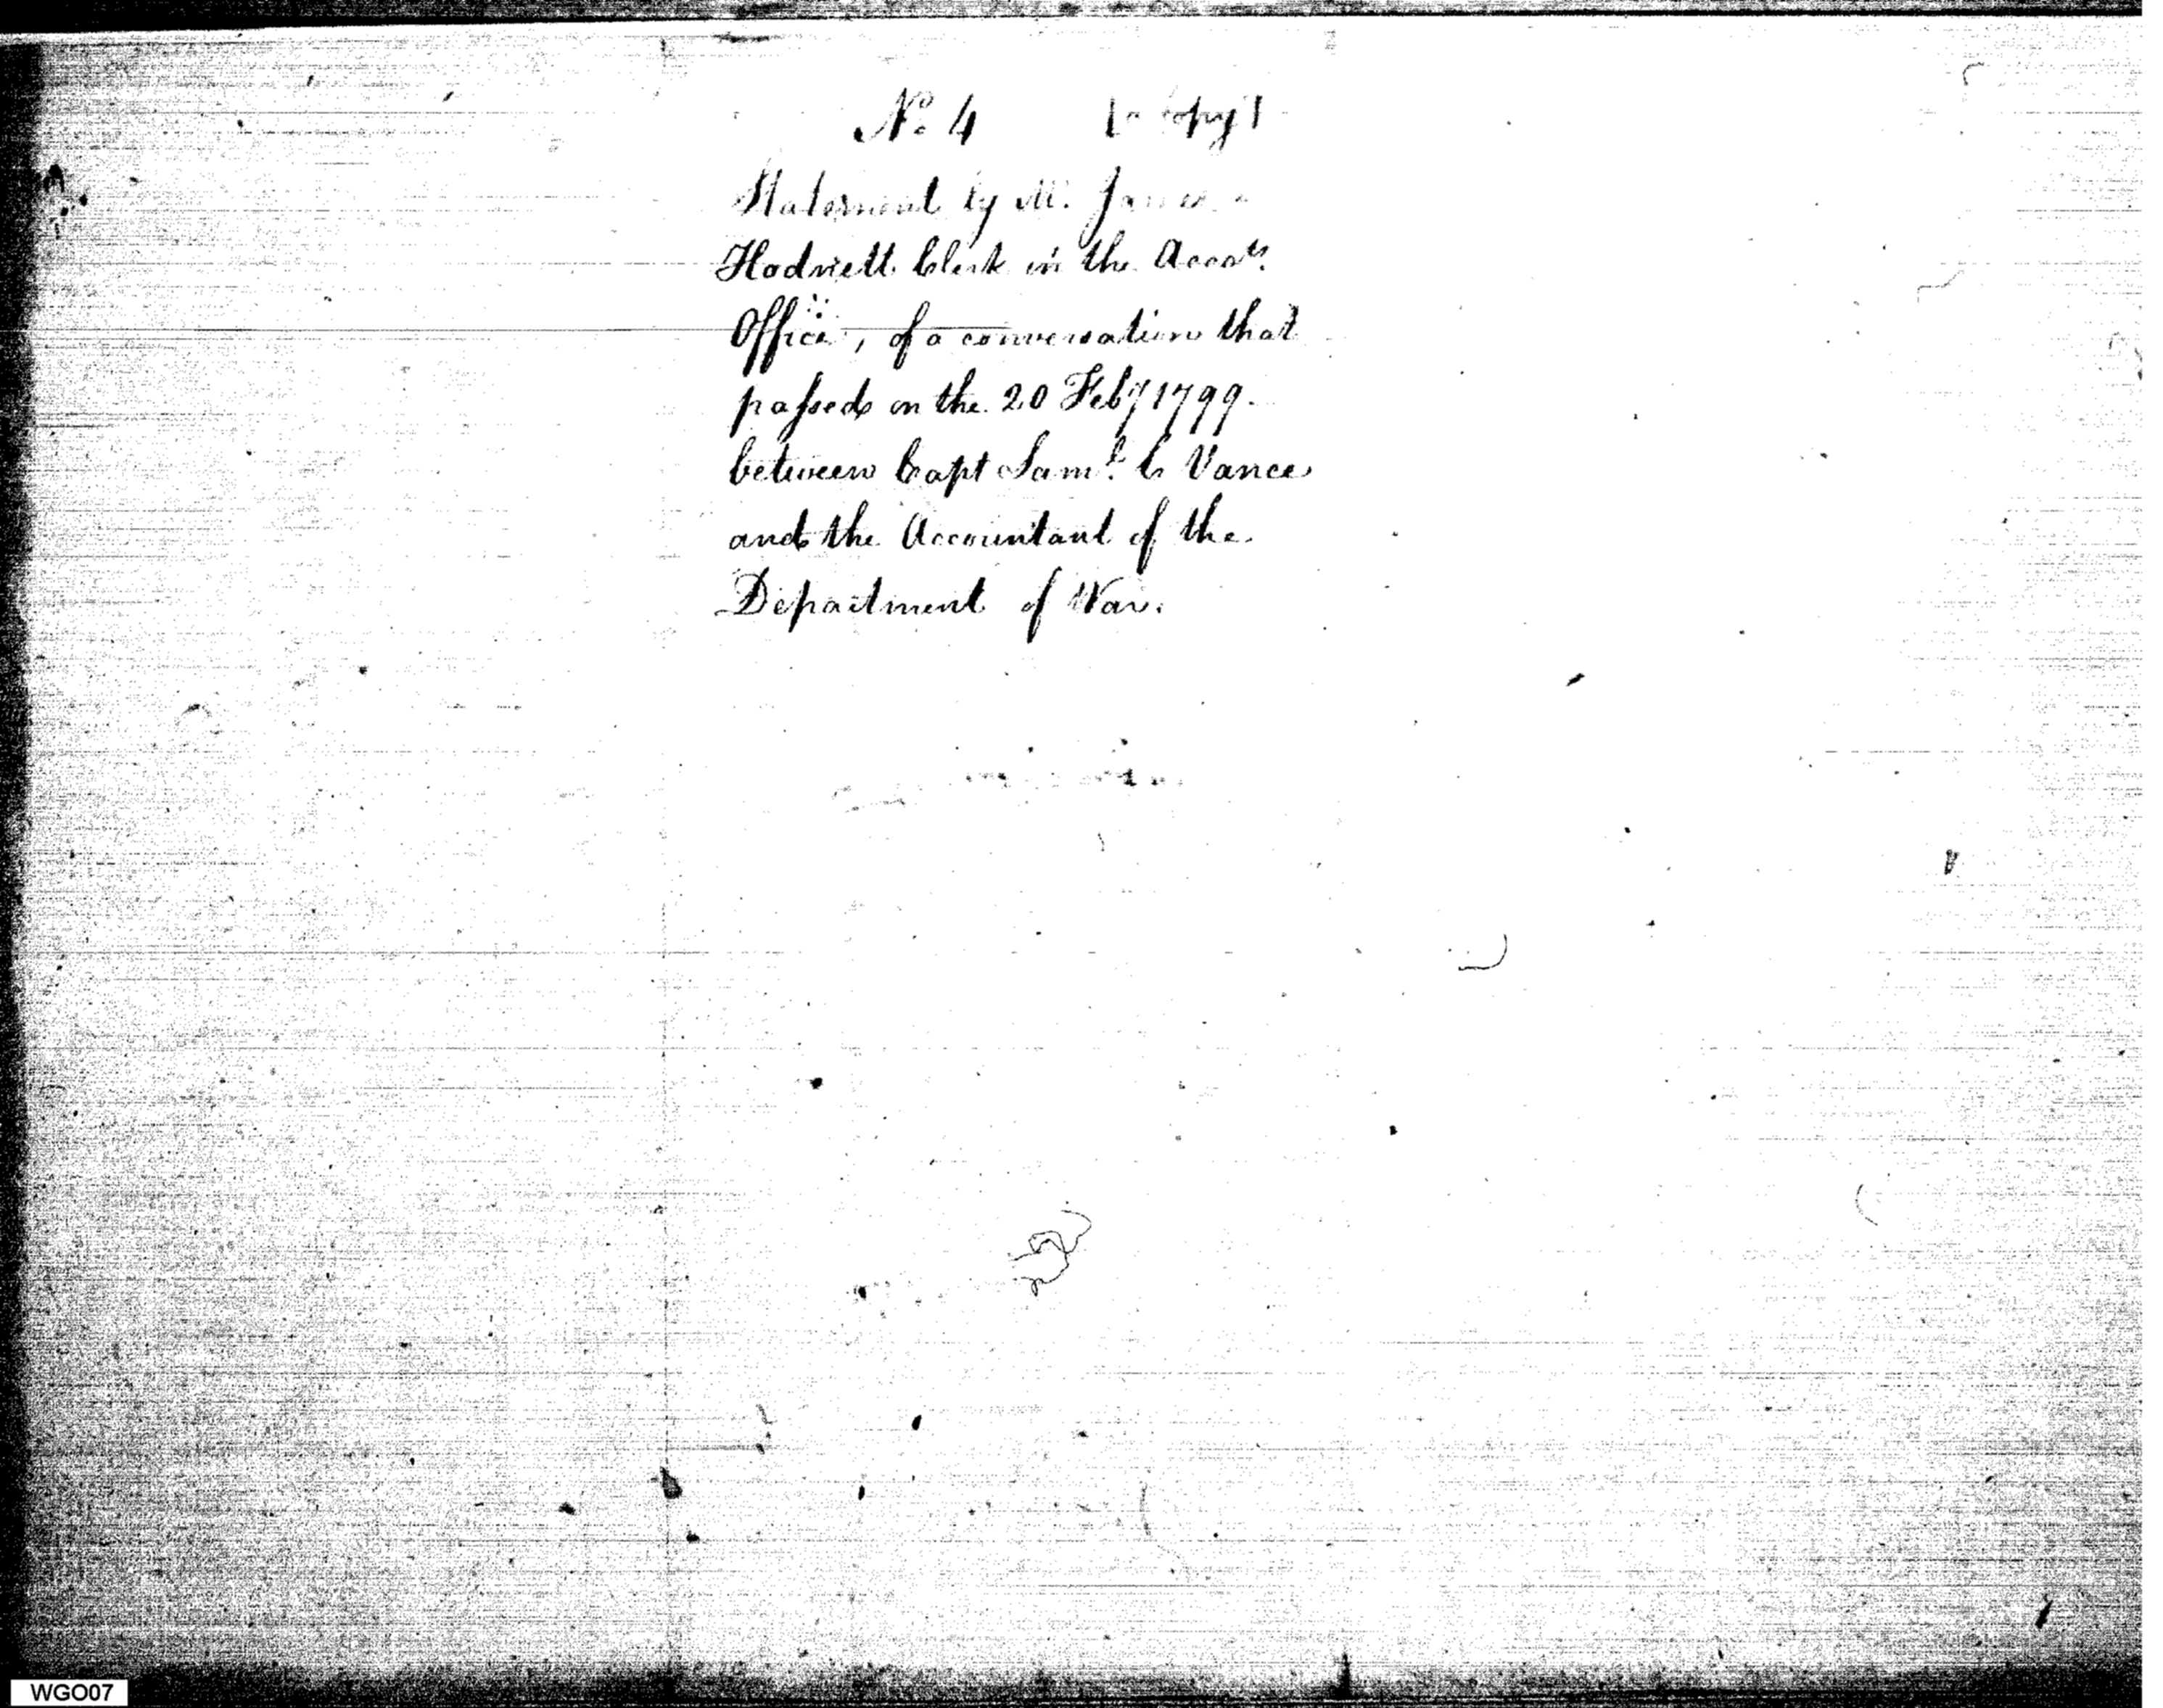 No. 4 [a copy]
Statement by Mr. James
Hodnett Clerk in the Accots.
Office, of a conversation that
passed on the 20 Feby 1799.
between Capt Saml. C Vance
and the Accountant of the
Department of War.
WGO07